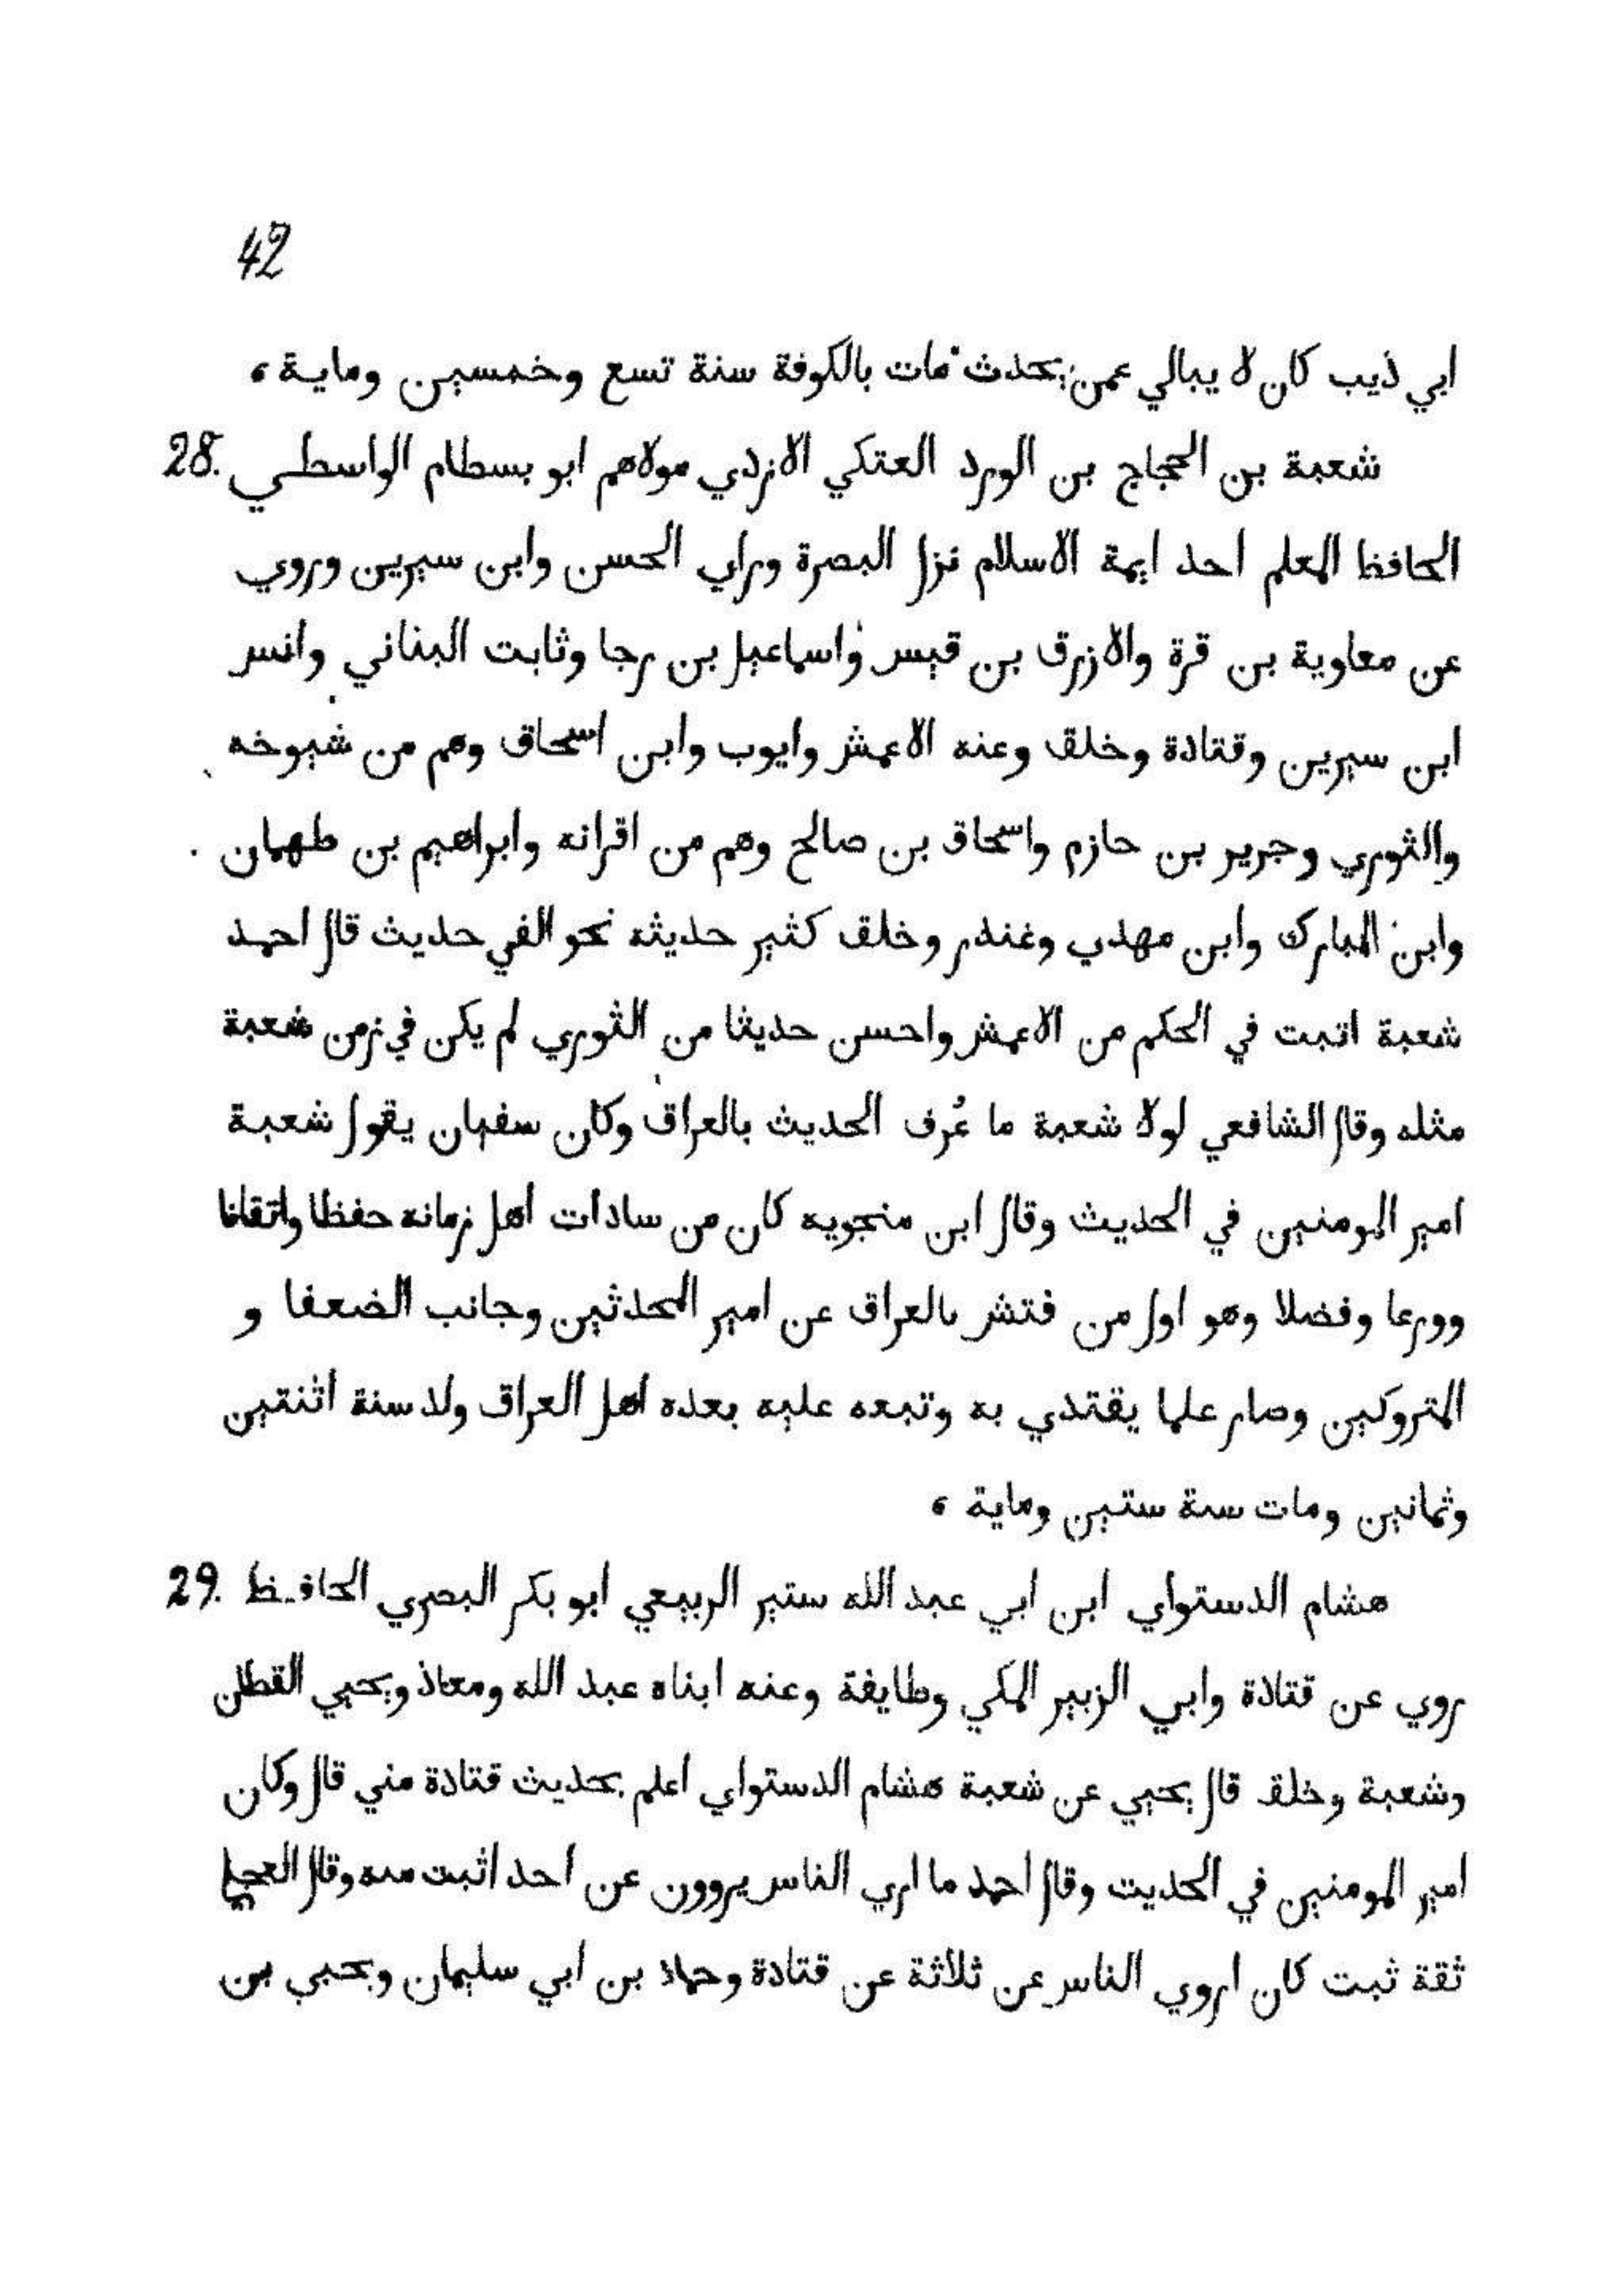 42
ابي ذيب كان لا يبالي عمن يحدث مات بالكوفة سنة تسع وخمسين وماية،
28. شعبة بن الحجاج بن الورد العتكي الازدي مولاهم ابو بسطام الواسطي
الحافظ العلم احد ايمة الاسلام نزل البصرة وراي الحسن وابن سيرين وروي
عن معاوية بن قرة والازرق بن قيس واسماعيل بن رجا وثابت البناني وانس
ابن سيرين وقتادة وخلق وعنه الاعمش وايوب وابن اسحاق وهم من شيوخه
والثوري وجرير بن حازم واسحاق بن صالح وهم من اقرانه وابراهيم بن طهمان
وابن المبارك وابن مهدي وغندر وخلق كثير حديثه نحو الفي حديث قال احمد
شعبة اتبت في الحكم من الاعمش واحسن حديثا من الثوري لم يكن في زمن شعبة
مثله وقال الشافعي لولا شعبة ما عُرف الحديث بالعراق وكان سفيان يقول شعبة
امير المومنين في الحديث وقال ابن منجويه كان من سادات اهل زمانه حفظا واتقانا
وورعا وفضلا وهو اول من فتش بالعراق عن امير المحدثين وجانب الضعفا و
المتروكين وصار علما يقتدي به وتبعه عليه بعده اهل العراق ولد سنة اثنتين
وثمانين ومات سنة ستين وماية،
29. هشام الدستواي ابن ابي عبد الله ستبر الربيعي ابو بكر البصري الحافظ
روي عن قتادة وابي الزبير المكي وطايفة وعنه ابناه عبد الله ومعاذ ويحيي القطان
وشعبة وخلق قال يحيي عن شعبة هشام الدستواي اعلم بحديث قتادة مني قال وكان
امير المومنين في الحديت وقال احمد ما اري الناس يروون عن احد اثبت منه وقال العجلي
ثقة ثبت كان اروي الناس عن ثلاثة عن قتادة وحماد بن ابي سليمان ويحيي بن